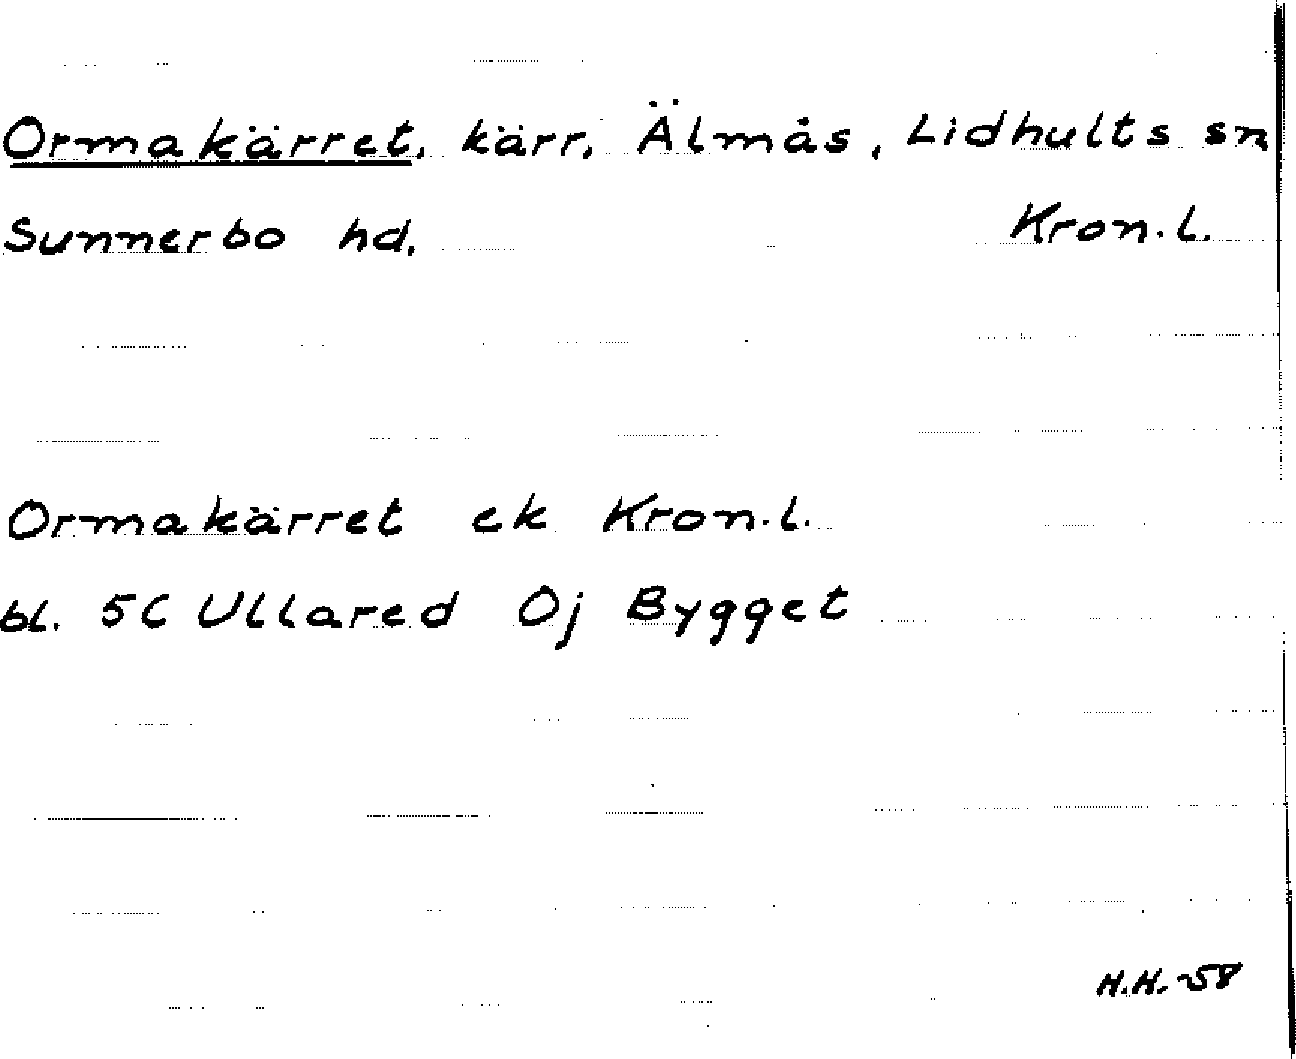 Ormakärret, kärr, Älmås, Lidhults sn
Sunnerbo hd. Kron.l.
Ormakärret ek Kron.l.
bl. 5C Ullared Oj Bygget
H.H. -58